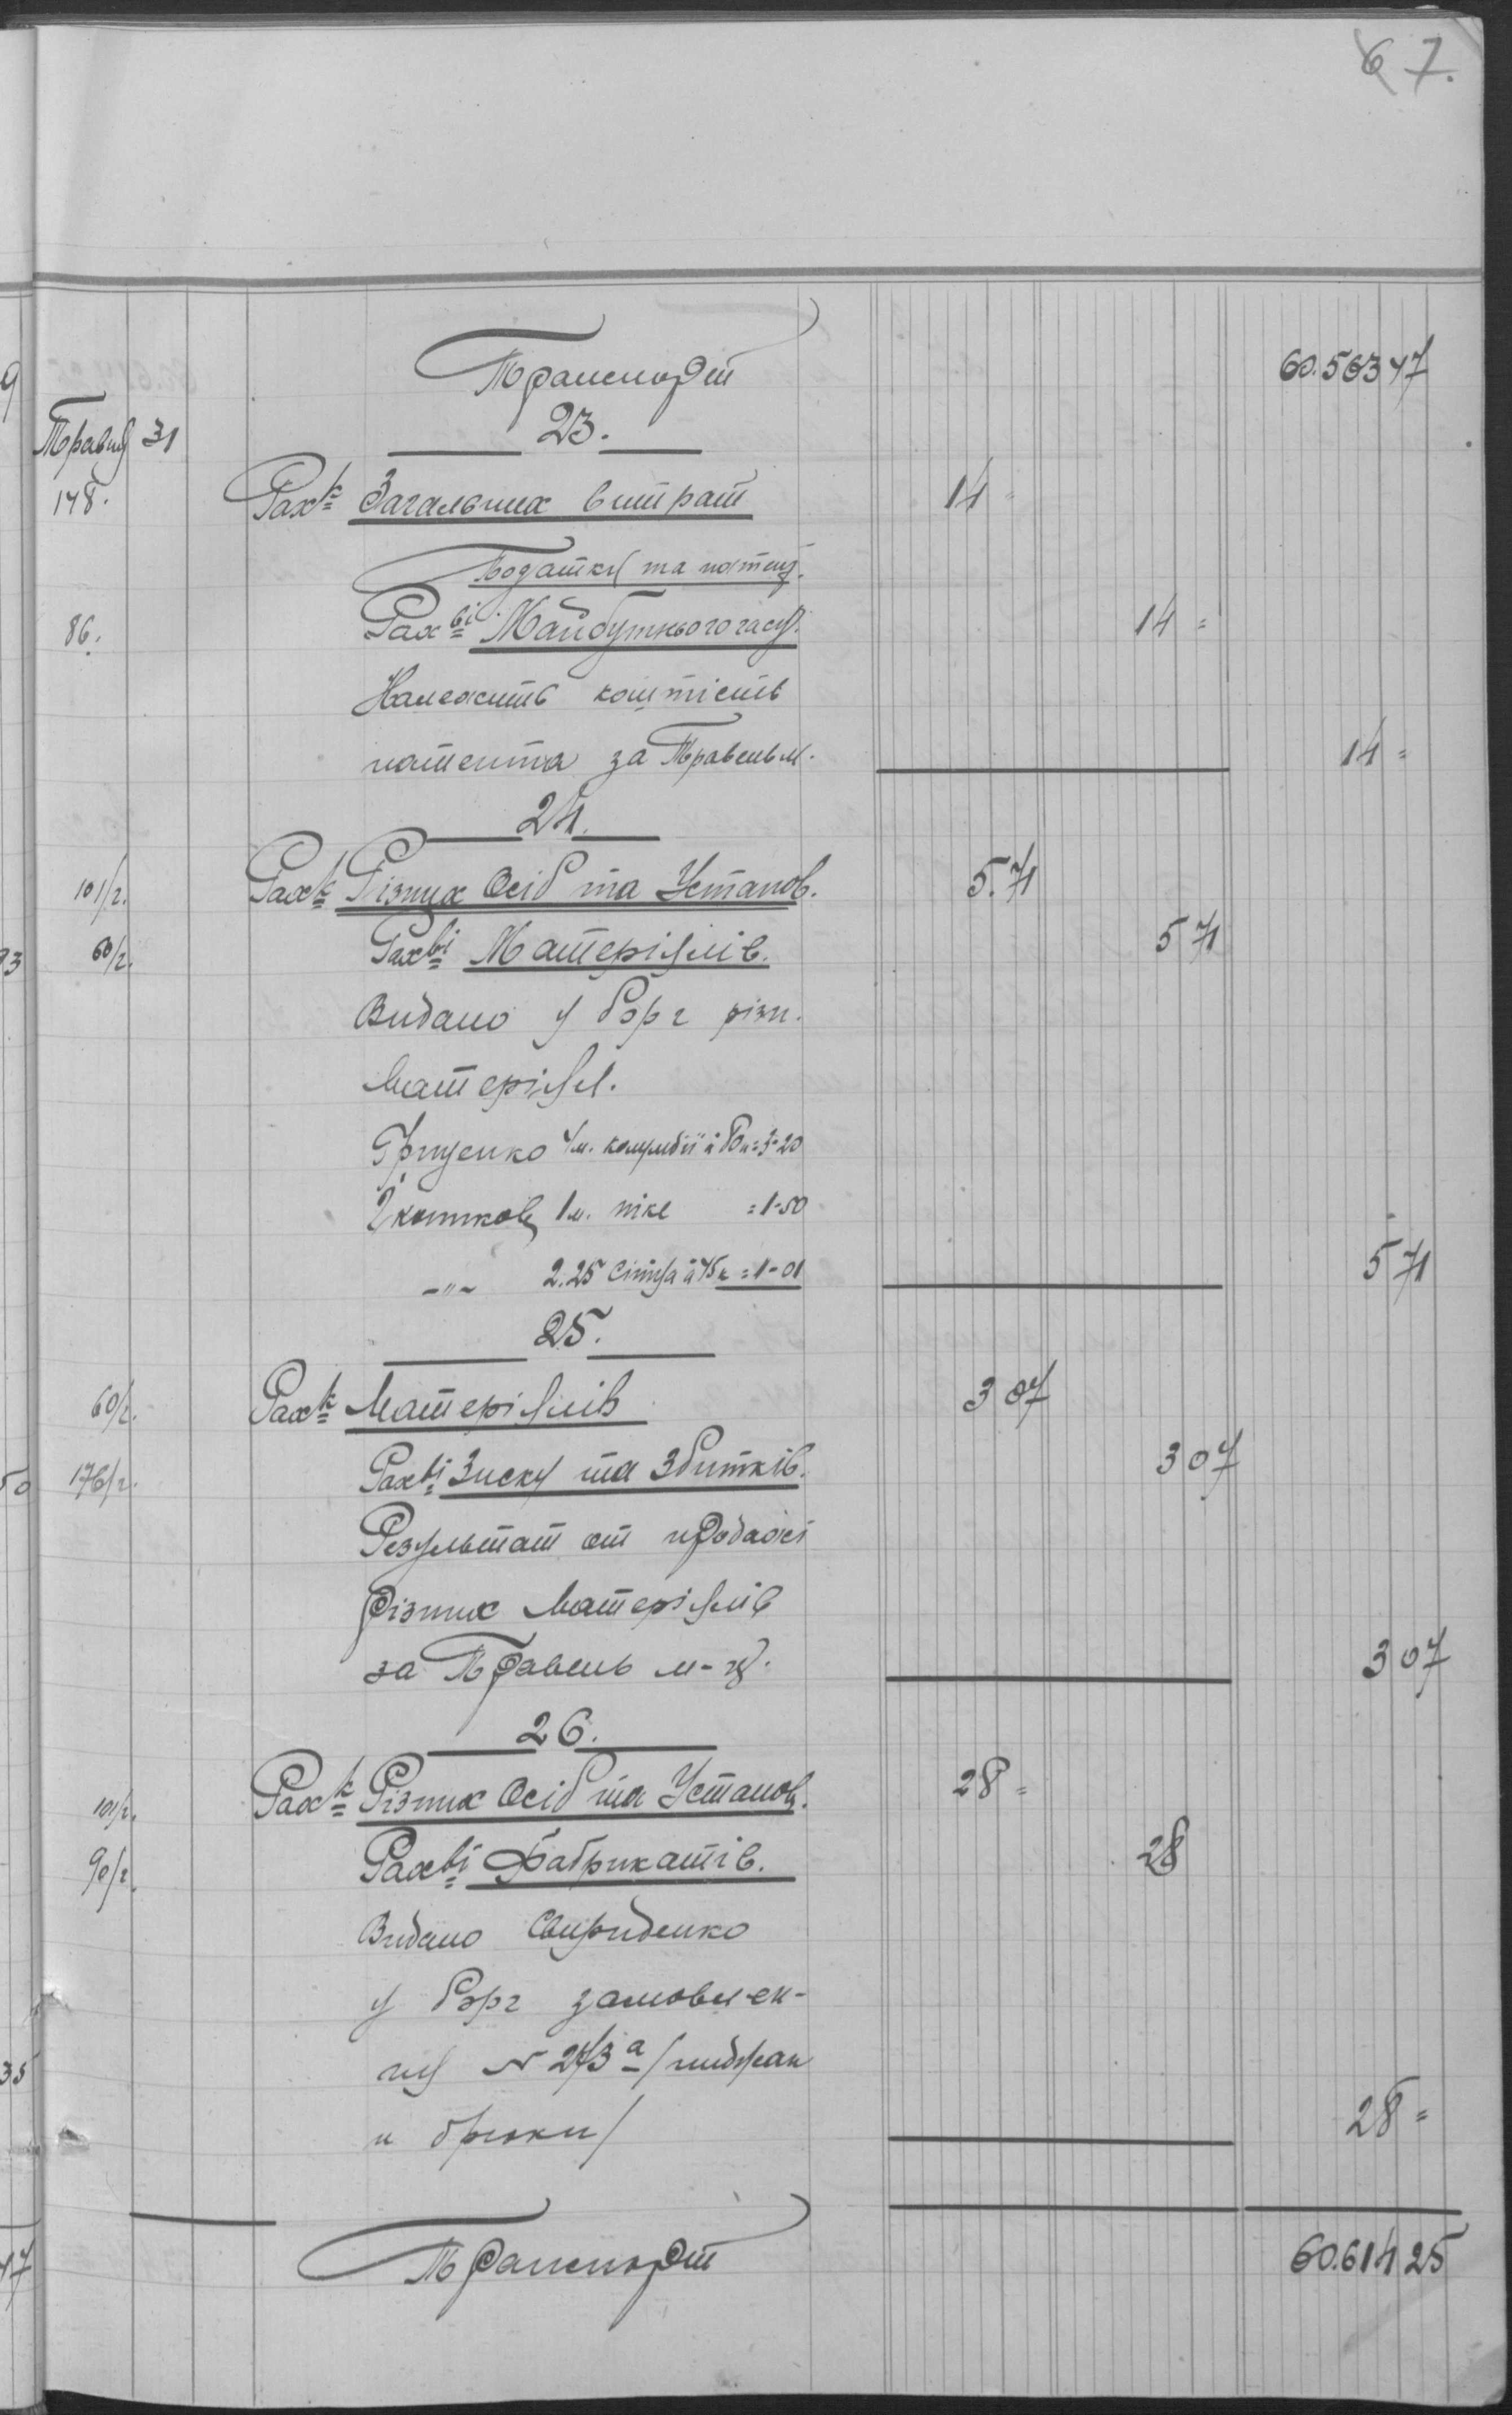 67.
Транспорт 60.563 47
Травня 31
23.
148. Рах-к Загальних витрат 14 =
Податки та патенц.
86. Рах-ві Майбутнього часу. 14 =
Належить коштість
патента за Травень м. 14 =
24.
101/2. Рах-к Різних Осіб та Установ. 5.71
60/2. Рах-ві Матеріялів. 5 71
Видано у борг різн.
матеріял.
Грищенко 4 м. à 80 к = 3-20
1 м. піке = 1-50
-"- 2.25 à 45 к = 1-01 5 71
25.
60/2. Рах-к Матеріялів 3 07
176/2. Рах-ві Зиску та Збитків. 3 07
Результат от продажі
різних матеріялів
за Травень м-ць. 3 07
26.
101/2. Рах-к Різних Осіб та Установ. 28 =
90/2. Рах-ві Фабрикатів. 28
Видано Свириденко
у борг замовлен-
ня N 243а /пиджак
и брюки/ 28 =
Транспорт 60.614 25